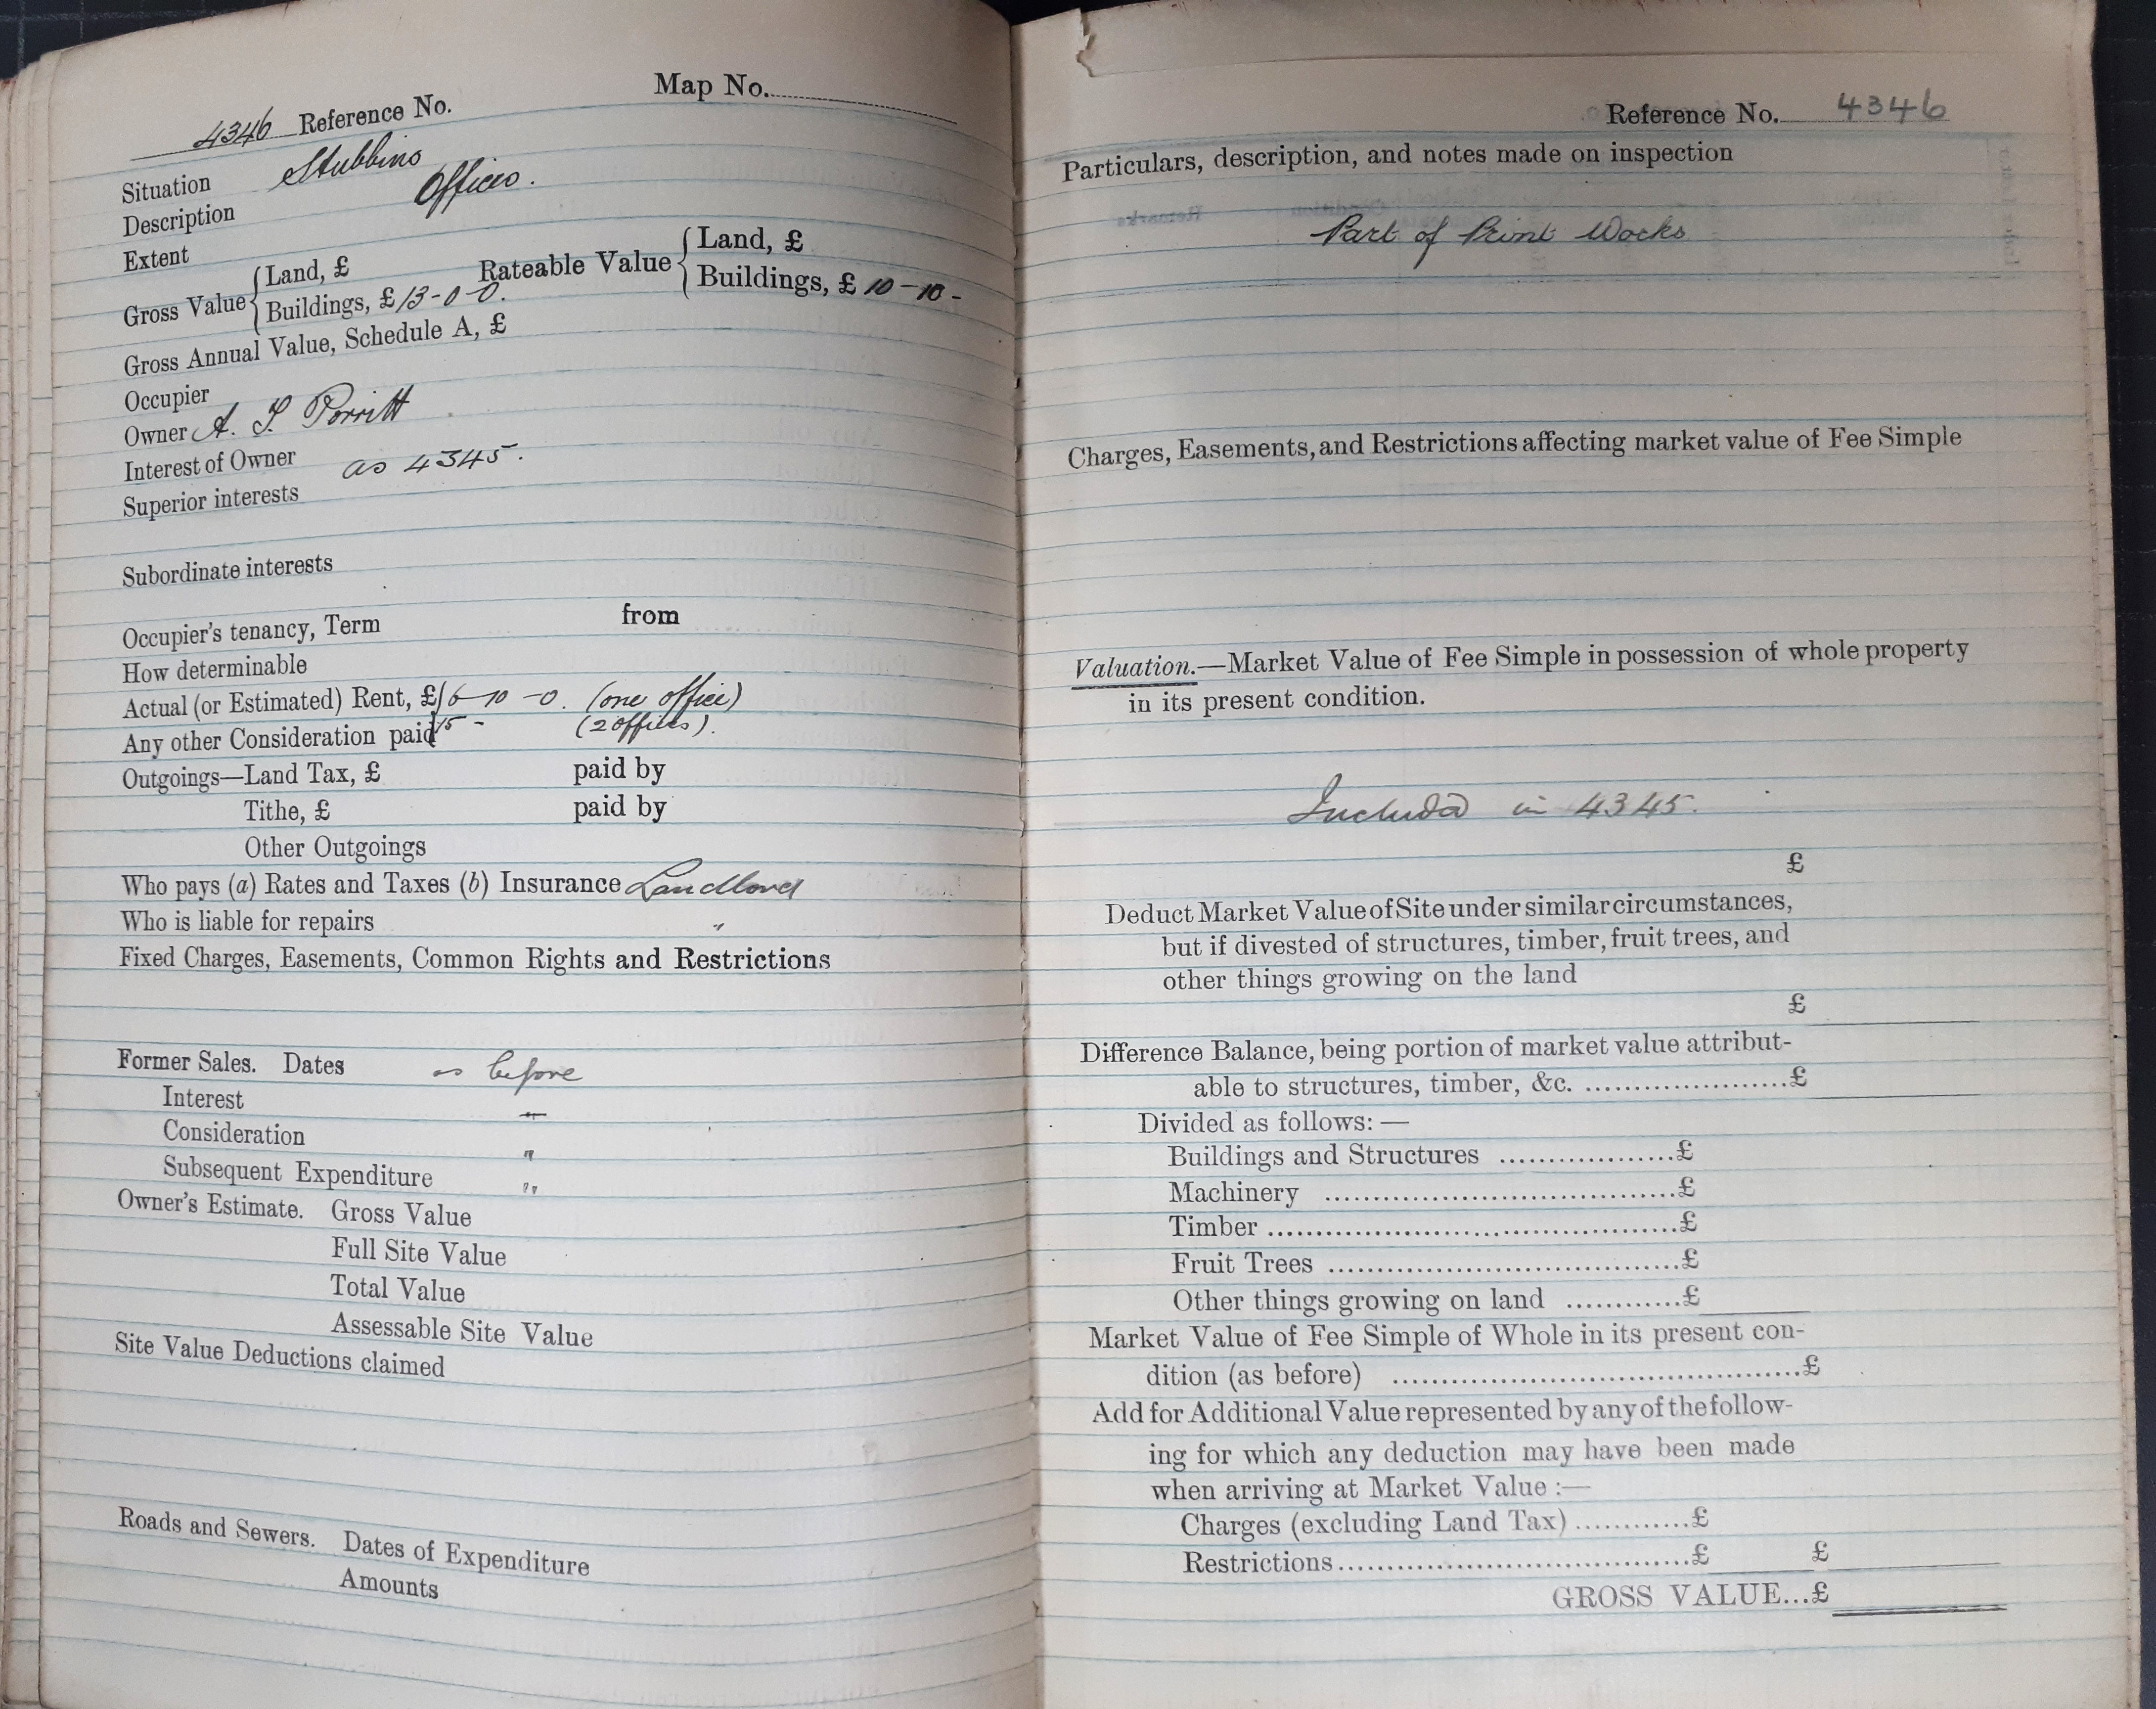 Map No.
4346 Reference No.
Situation Stubbins
Description Offices.
Extent
Gross Value { Land, £ Rateable Value { Land, £
Buildings, £ 13-0-0. Buildings, £ 10-10-
Gross Annual Value, Schedule A, £
Occupier
Owner A. T. Porritt
Interest of Owner as 4345.
Superior interests
Subordinate interests
Occupier's tenancy, Term from
How determinable
Actual (or Estimated) Rent, £ 6-10-0. (one office)
Any other Consideration paid 15- (2 offices).
Outgoings—Land Tax, £ paid by
Tithe, £ paid by
Other Outgoings
Who pays (a) Rates and Taxes (b) Insurance Landlord
Who is liable for repairs "
Fixed Charges, Easements, Common Rights and Restrictions
Former Sales. Dates as before
Interest "
Consideration "
Subsequent Expenditure "
Owner's Estimate. Gross Value
Full Site Value
Total Value
Assessable Site Value
Site Value Deductions claimed
Roads and Sewers. Dates of Expenditure
Amounts
Reference No. 4346
Particulars, description, and notes made on inspection
Part of Print Works
Charges, Easements, and Restrictions affecting market value of Fee Simple
Valuation.—Market Value of Fee Simple in possession of whole property
in its present condition.
Included in 4345.
£
Deduct Market Value of Site under similar circumstances,
but if divested of structures, timber, fruit trees, and
other things growing on the land
£
Difference Balance, being portion of market value attribut-
able to structures, timber, &c. ......................£
Divided as follows:—
Buildings and Structures ..................£
Machinery ....................................£
Timber ..........................................£
Fruit Trees ....................................£
Other things growing on land ............£
Market Value of Fee Simple of Whole in its present con-
dition (as before) ..........................................£
Add for Additional Value represented by any of the follow-
ing for which any deduction may have been made
when arriving at Market Value :—
Charges (excluding Land Tax) ............£
Restrictions....................................£ £
GROSS VALUE...£